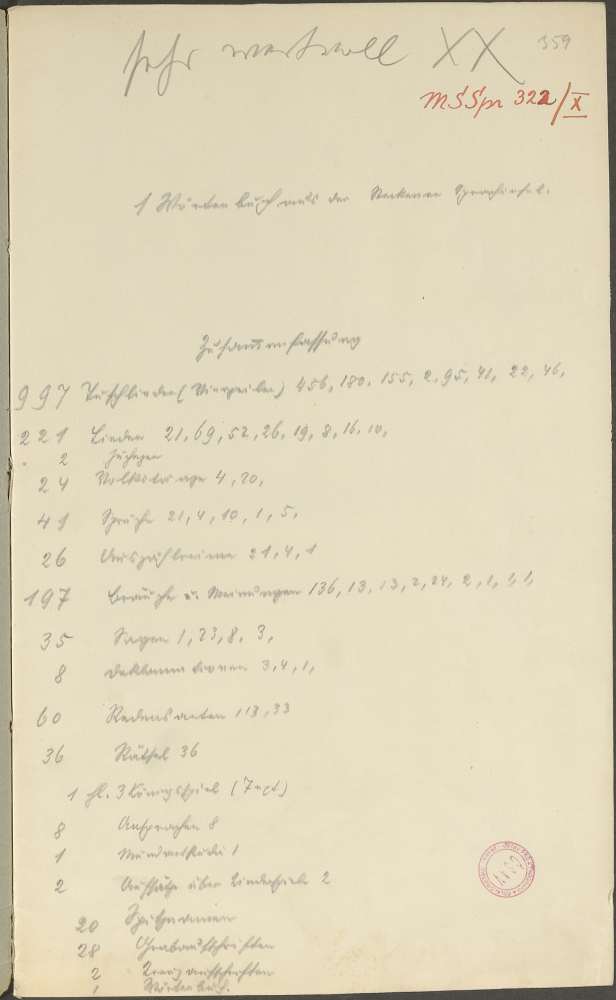 sehr wertvoll XX 359
MSSpr 322/X
1 Wörterbuch aus der Sprachinsel.
Zusammenfassung
997 Tuschlieder (Vierzeiler) 456, 180, 155, 2, 95, 41, 22, 46,
221 Lieder 21, 69, 52, 26, 19, 8, 16, 10,
2
24 Volkstänze 4, 20,
41 Sprüche 21, 4, 10, 1, 5,
26 Auszählreime 21, 4, 1
197 Bräuche u. Meinungen 136, 13, 13, 2, 24, 2, 1, 1, 1
35 Sagen 1, 23, 8, 3,
8 Deklamationen 3, 4, 1,
60 Redensarten 113, 33
36 Rätsel 36
1 Hl. 3 Königspiel (Text)
8 Ansprachen 8
1 1
2 Aufsätze über Kinderspiele 2
20 Spitznamen
28 Grabaufschriften
2 Kreuzaufschriften
1 Wörterbuch.